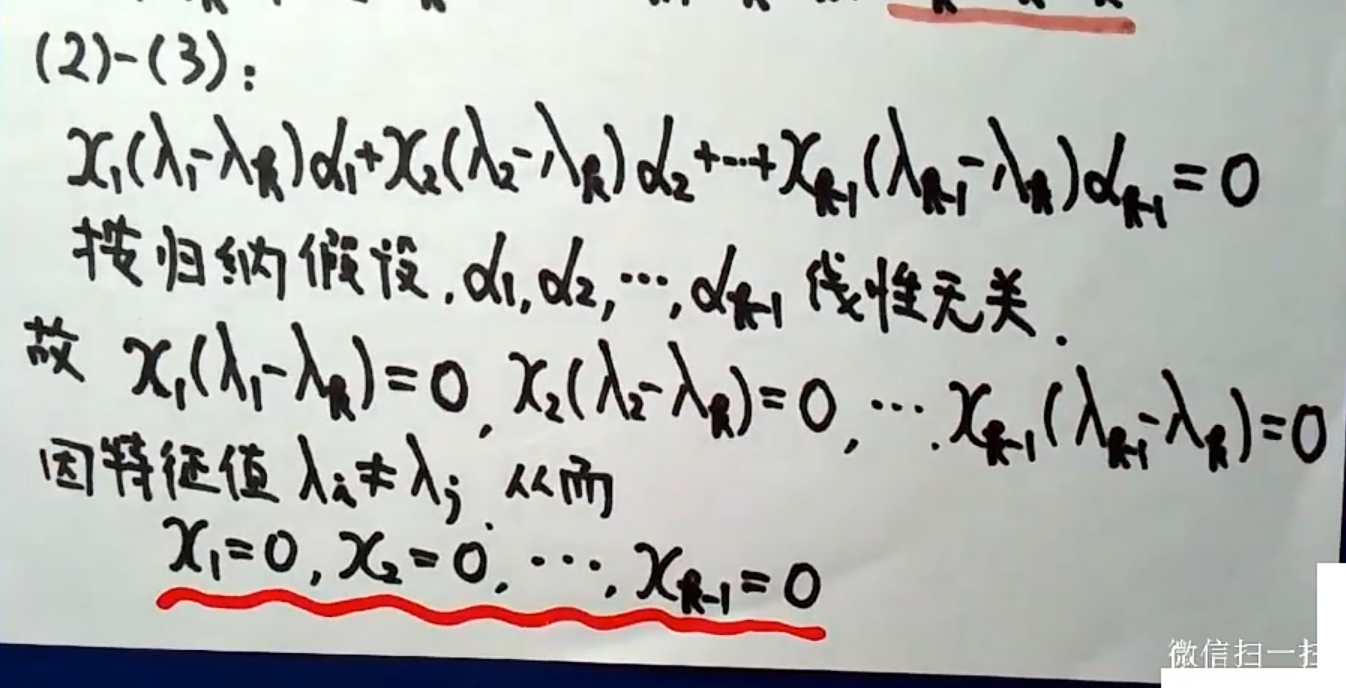 (2)-(3):
x₁(λ₁-λₖ)α₁+x₂(λ₂-λₖ)α₂+…+xₖ₋₁(λₖ₋₁-λₖ)αₖ₋₁=0
按归纳假设,α₁,α₂,…,αₖ₋₁线性无关.
故 x₁(λ₁-λₖ)=0,x₂(λ₂-λₖ)=0,…,xₖ₋₁(λₖ₋₁-λₖ)=0
因特征值λᵢ≠λⱼ.从而
x₁=0,x₂=0,…,xₖ₋₁=0
微信扫一扫